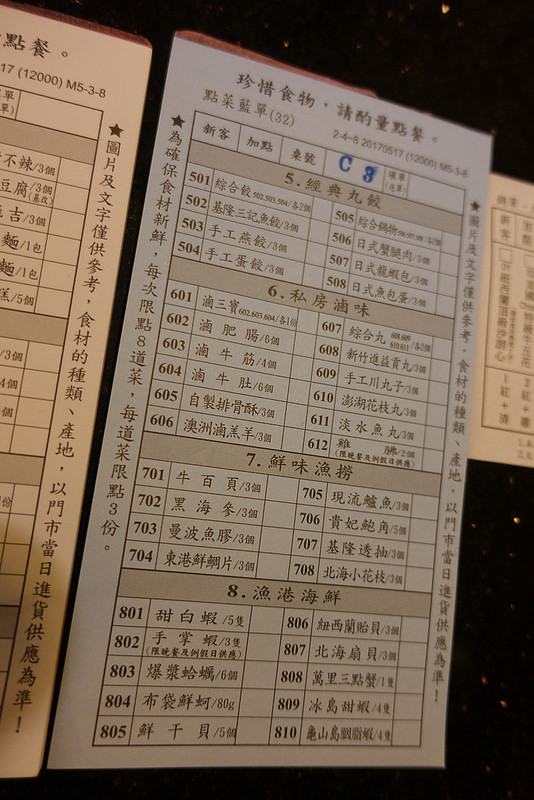 點餐。
17 (12000) M5-3-8
不辣/3個
豆腐/3個
(基改)
吉/3個
麵/1包
麵/1包
糕/5個
/3個
4個
/3個
/3個
★圖片及文字僅供參考，食材的種類、產地，以門市當日進貨供應為準！
珍惜食物，請酌量點餐。
點菜藍單(32)
2-4-8 20170517 (12000) M5-3-8
新客 加點 桌號 C 3
(送單)
★為確保食材新鮮，每次限點8道菜，每道菜限點3份。
5.經典丸餃
501 綜合餃502.503.504/各2個
502 基隆三記魚餃/3個
503 手工燕餃/3個
504 手工蛋餃/3個
505 綜合鍋物
506 日式蟹腿肉/3個
507 日式龍蝦包/3個
508 日式魚包蛋/3個
6.私房滷味
601 滷三寶602.603.604/各1份
602 滷肥腸/6個
603 滷牛筋/4個
604 滷牛肚/6個
605 自製排骨酥/3個
606 澳洲滷羔羊/3個
607 綜合丸608.609 610.611/各2個
608 新竹進益貢丸/3個
609 手工川丸子/3個
610 澎湖花枝丸/3個
611 淡水魚丸/3個
612 雞 胇/2個
(限晚餐及例假日供應)
7.鮮味漁撈
701 牛百頁/3個
702 黑海參/3個
703 曼波魚膠/3個
704 東港鮮鯛片/3個
705 現流鱸魚/3個
706 貴妃鮑角/5個
707 基隆透抽/3個
708 北海小花枝/3個
8.漁港海鮮
801 甜白蝦/5隻
802 手掌蝦/3隻
(限晚餐及例假日供應)
803 爆漿蛤蠣/6個
804 布袋鮮蚵/80g
805 鮮干貝/5個
806 紐西蘭貽貝/3個
807 北海扇貝/3個
808 萬里三點蟹/1隻
809 冰島甜蝦/4隻
810 龜山島胭脂蝦/4隻
★圖片及文字僅供參考，食材的種類、產地，以門市當日進貨供應為準！
新客
紅